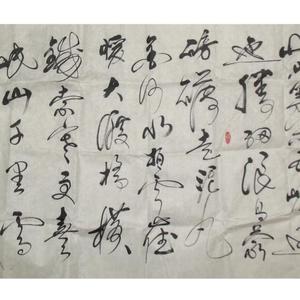 迤腾细浪乌蒙
磅礴走泥丸
金沙水拍云崖
暖大渡桥横
铁索寒更喜
岷山千里雪